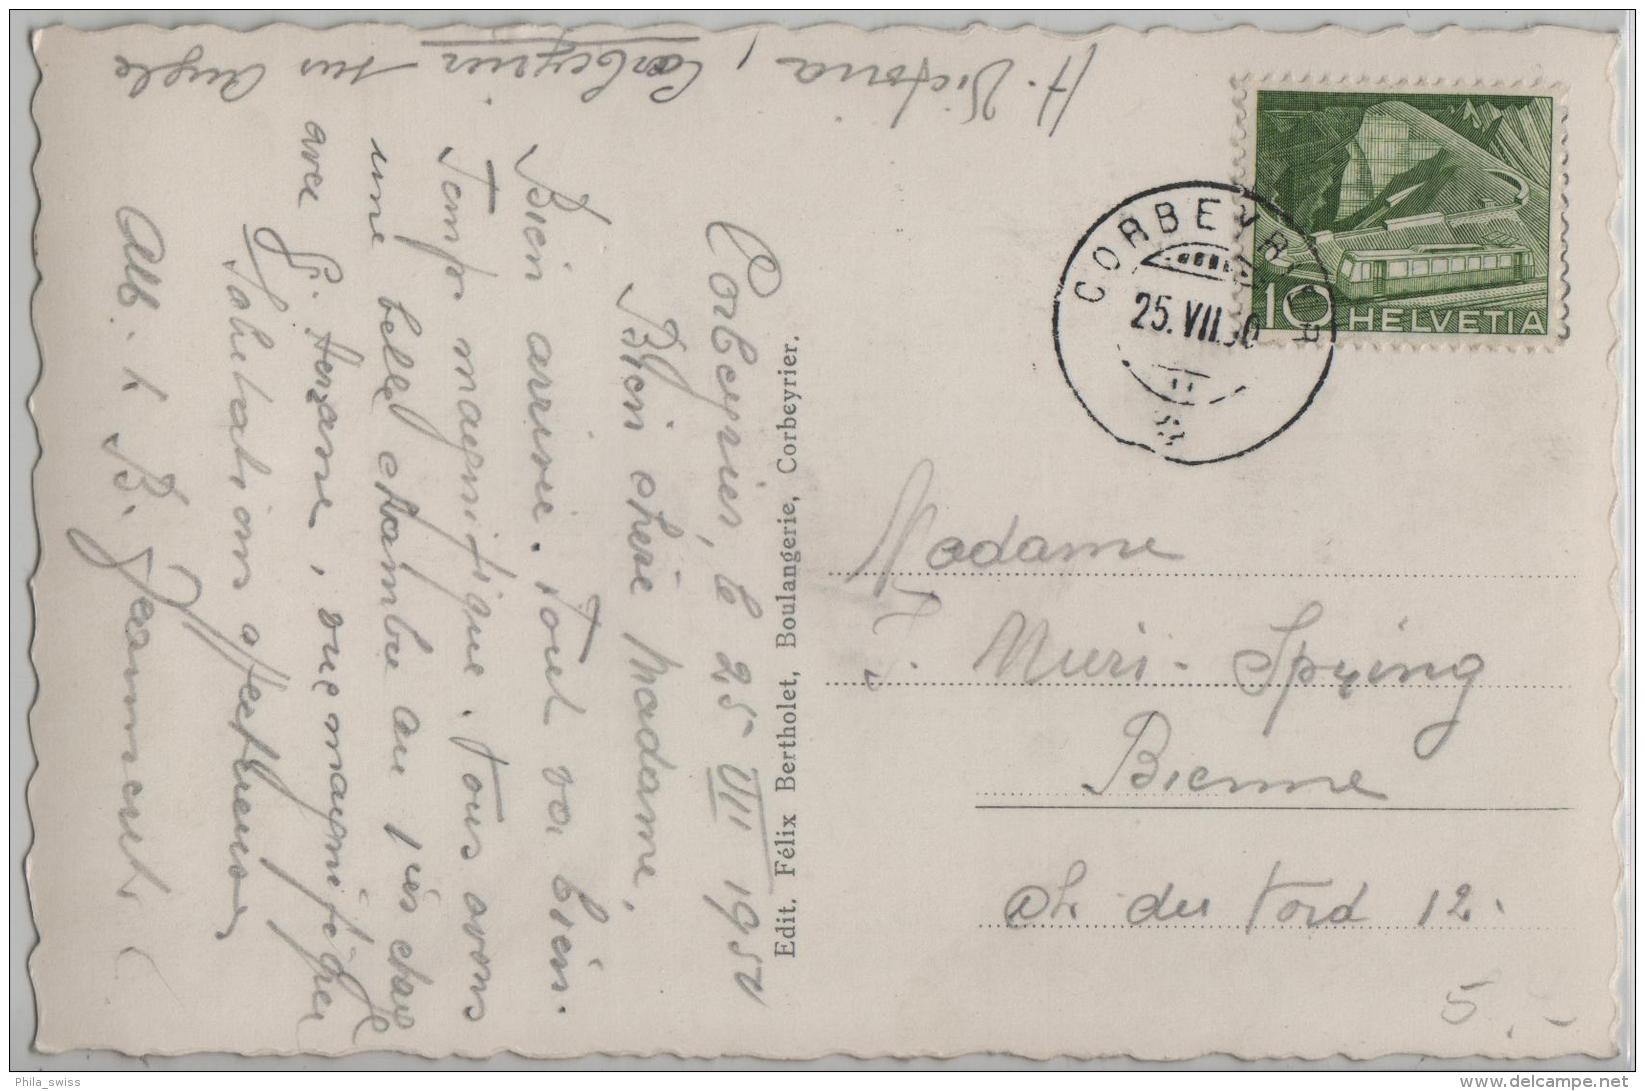 H. Victoria, Corbeyrier sur Aigle
Corbeyrier, le 25 VII 1950
Bien chère Madame,
Bien arrivée. Tout va bien.
Temps magnifique. Nous avons
une belle chambre au
avec , vue magnifique
Salutations affectueuses
B. Jeanneret
Edit. Félix Bertholet, Boulangerie, Corbeyrier.
CORBEYRIER
25.VII.50
10 HELVETIA
Madame
F. Muri-Spring
Bienne
ch du 12.
5.-
Phila_swiss
delcampe.net